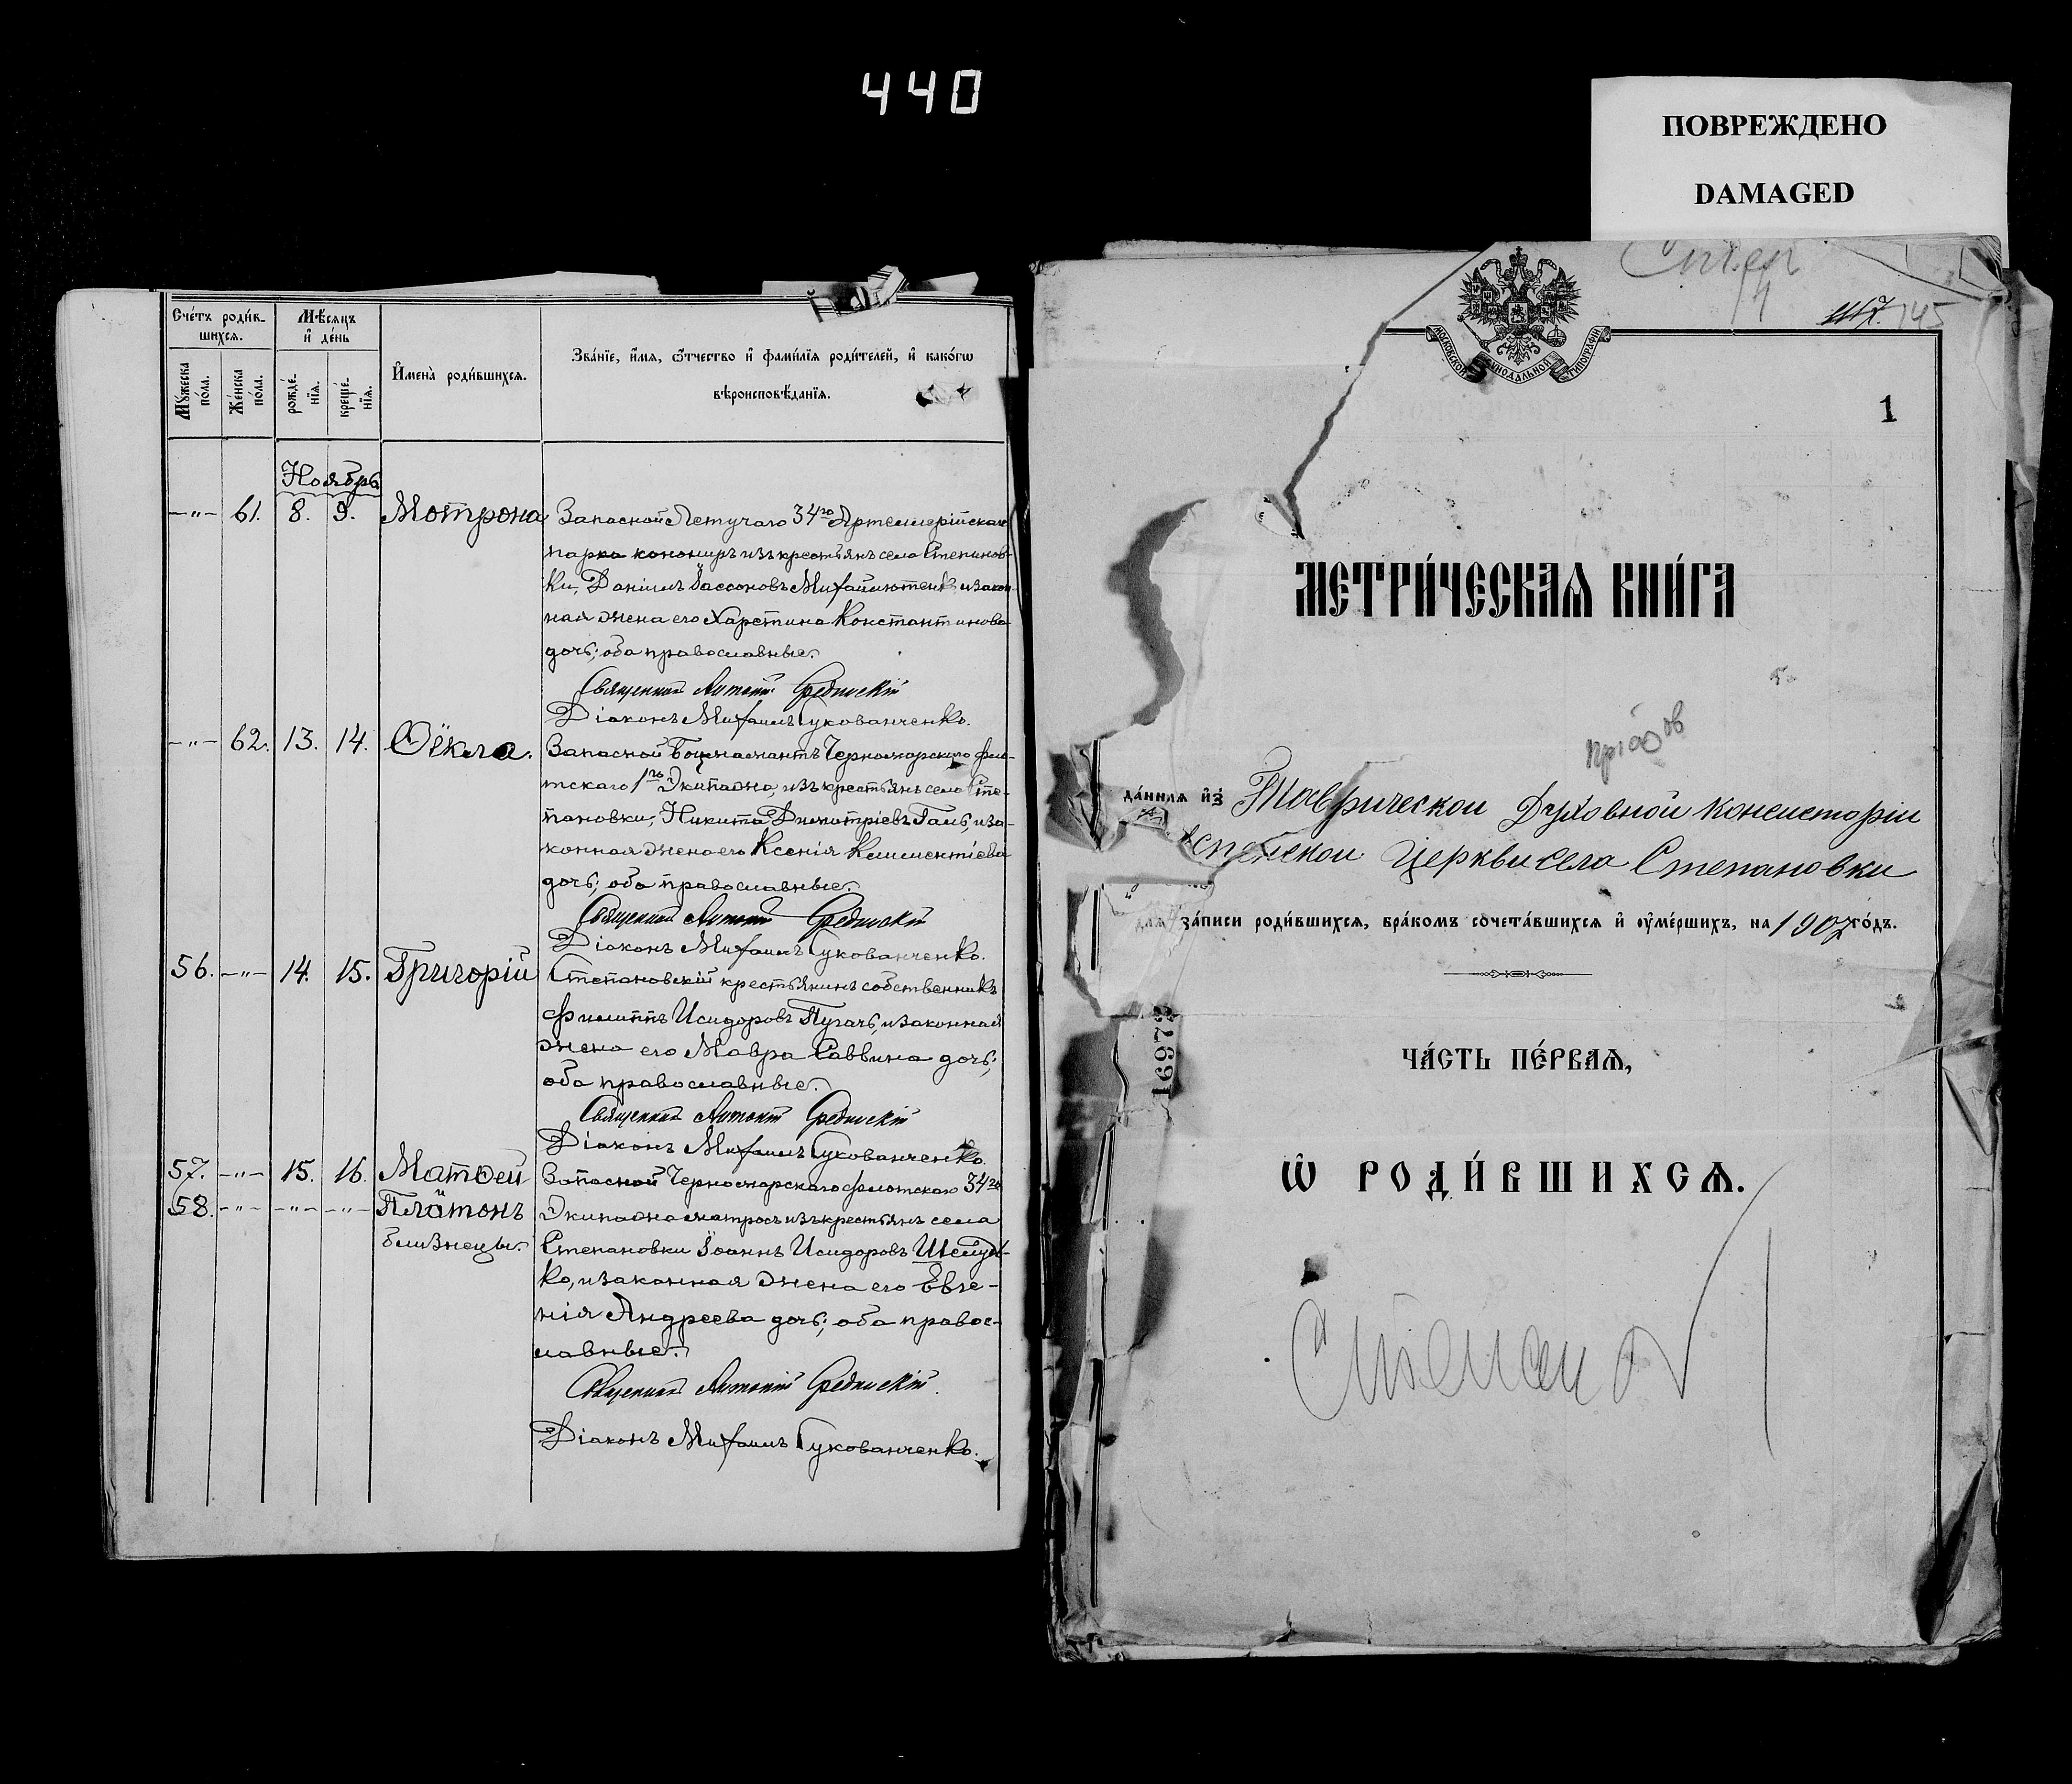 440
ПОВРЕЖДЕНО
DAMAGED
Счétъ роди́в-
шихся.
Мѣсяцъ
и҆ де́нь
Мꙋ́жеска по́ла.
Же́нска по́ла.
рожде́-нїя.
креще́-нїя.
И҆мена̀ роди́вшихся.
Зва́нїе, и҆́мя, ѻ҆́тчество и҆ фами́лїя роди́телей, и҆ како́гѡ
вѣроисповѣ́данїя.
Ноябрь
—"— 61. 8. 9. Мотрона
Запасной Летучаго 34го Артиллерійскаго
парка канониръ изъ крестьянъ села Степанов-
ки, Даніилъ Іассоновъ Михайлютенко, и закон-
ная жена его Харстина Константинова
дочь; оба православные.
Священникъ Антоній Средискій
Діаконъ Михаилъ Гукованченко.
—"— 62. 13. 14. Ѳекла.
Запасной Боцманматъ Черноморскаго фло-
тскаго 1го Экипажа, изъ крестьянъ села Сте-
пановки, Никита Димитріевъ Галь, и за-
конная жена его Ксенія Климентіева
дочь; оба православные.
Священникъ Антоній Средискій
Діаконъ Михаилъ Гукованченко.
56. —"— 14. 15. Григорій
Степановскій крестьянинъ собственникъ
Филиппъ Исидоровъ Пугачь, и законная
жена его Мавра Саввина дочь;
оба православные.
Священникъ Антоній Средискій
Діаконъ Михаилъ Гукованченко.
57. —"— 15. 16. Матѳей
58. —"— —"— —"— Платонъ
близнецы.
Запасной Черноморскаго флотскаго 34го
Экипажа матросъ изъ крестьянъ села
Степановки Іоаннъ Исидоровъ Шейдь-
ко, и законная жена его Евге-
нія Андреева дочь; оба правос-
лавные.
Священникъ Антоній Средискій.
Діаконъ Михаилъ Гукованченко.
Степ
145
МОСКОВСКОЙ СИНОДАЛЬНОЙ ТИПОГРАФІИ
1
МЕТРИ́ЧЕСКАѦ КНИ́ГА
да́нная и҆з̾ Таврической Духовной Консисторіи
спенской Церкви села Степановки
для за́писи роди́вшихся, бра́комъ сочета́вшихся и҆ ᲂу҆ме́ршихъ, на 1907 го́дъ.
16973
ЧА́СТЬ ПЕ́РВАѦ,
Ѡ҆ РОДИ́ВШИХСѦ.
Степан